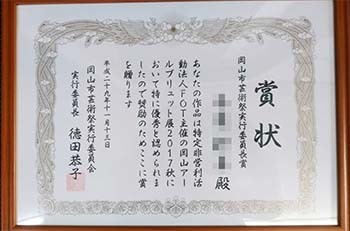 賞状
岡山市芸術祭実行委員会委員長賞
殿
あなたの作品は特定非営利活
動法人FOT主催の岡山アー
ルブリュット展2017秋に
おいて特に優秀と認められま
したので奨励のためここに賞
を贈ります
平成二十九年十一月十三日
岡山市芸術祭実行委員会
実行委員長 德田恭子